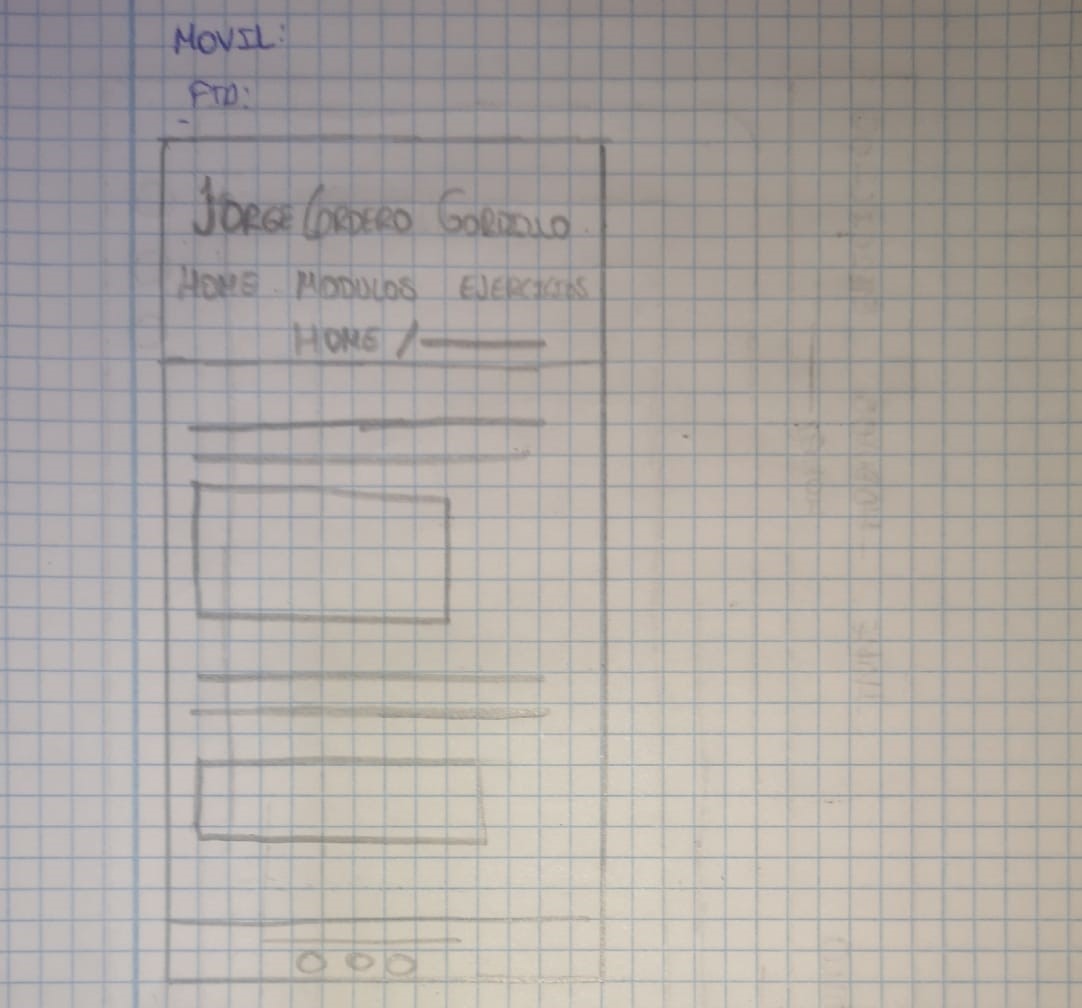 MOVIL:
FTD:
JORGE CORDERO GORDILLO
HOME MODULOS EJERCICIOS
HOME /